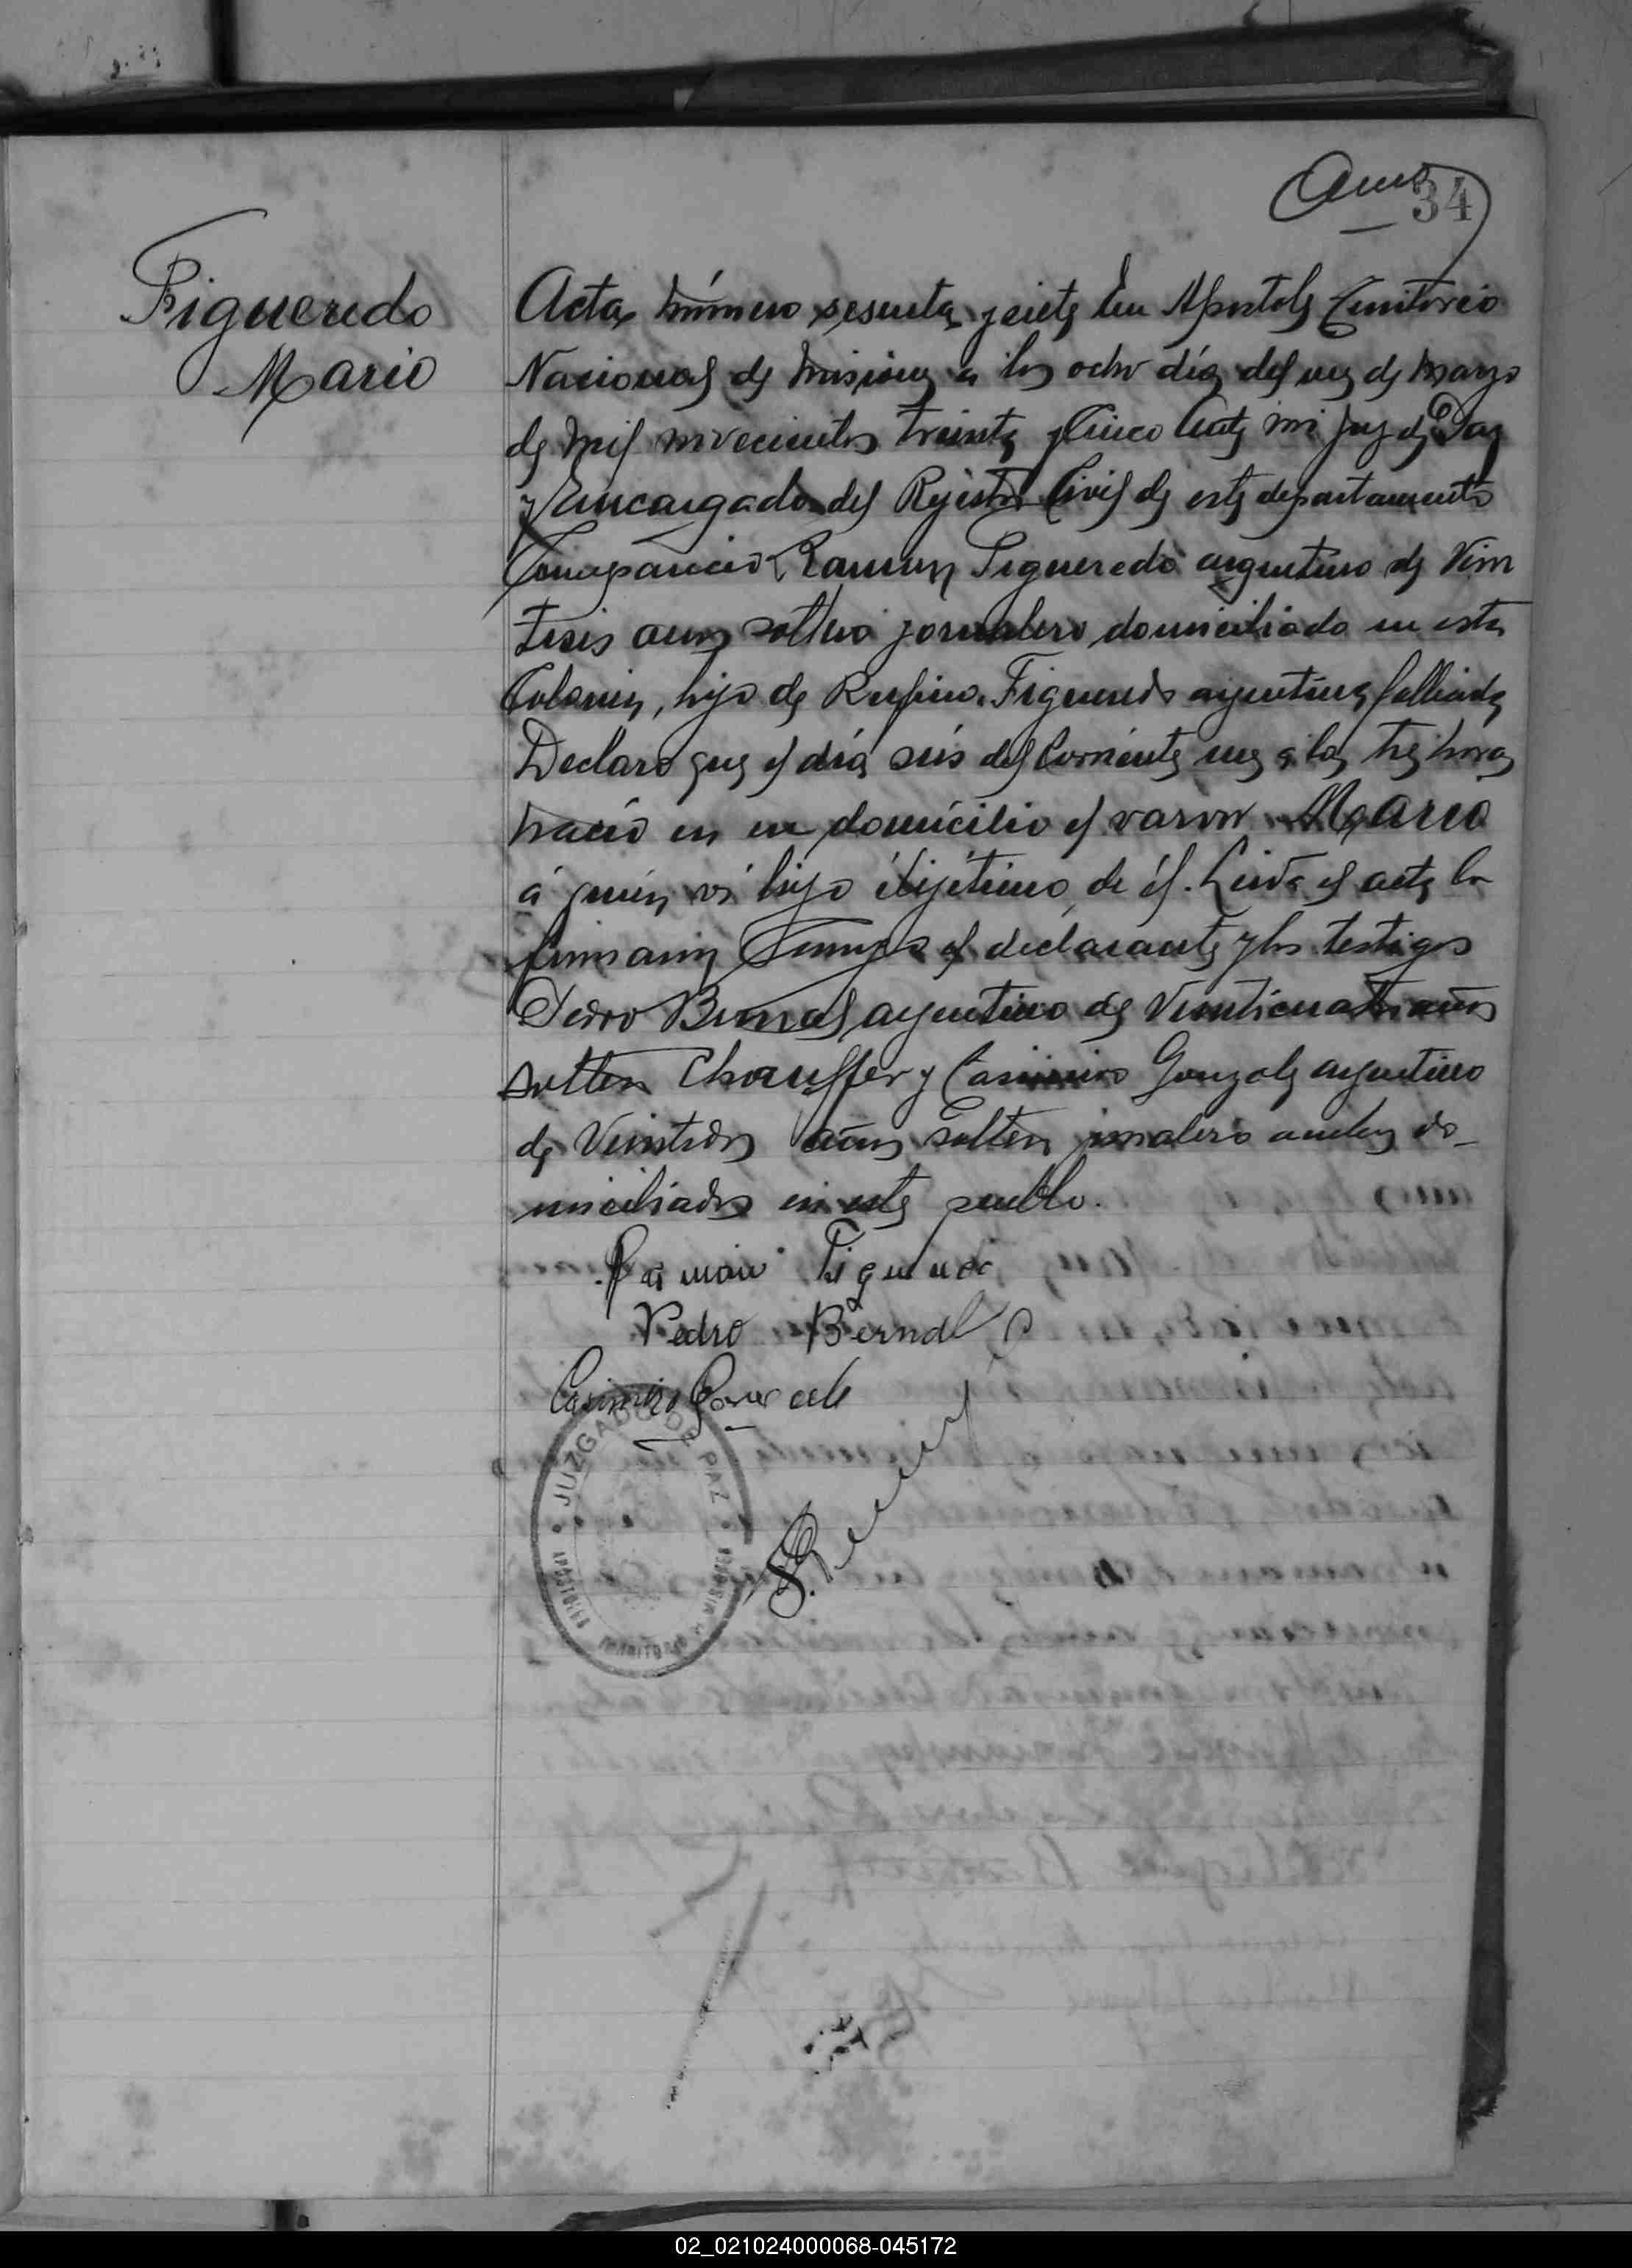 34
Figueredo
Mario
Acta número sesenta y siete En Apostoles Territorio
Nacional de Misiones a los ocho días del mes de Marzo
de mil novecientos treinta y Cinco Ante mi Juez de Paz
y Encargado del Rejistro Civil de este departamento
Compareció Ramon Figueredo argentino de Vein
tiseis años soltero jornalero domiciliado en esta
Colonia, hijo de Rufina Figueredo argentina fallecida
Declaro que el día seis del Corriente mes a las tres horas
nació en su domicilio el varon Mario
á quien ví hijo ilijétimo de él. Leida el acta la
firmaron Conmigo el declarante y los testigos
Pedro Bernal argentino de Veinticuatro años
soltero Chauffer y Casimiro Gonzalez argentino
de Veintidos años Soltero jornalero ambos do-
miciliados en este pueblo.
Ramon Figueredo
Pedro Bernal
Casimiro Gonzale
JUZGADO DE PAZ
APOSTOLES
TERRITORIO DE MISIONES
02_021024000068-045172